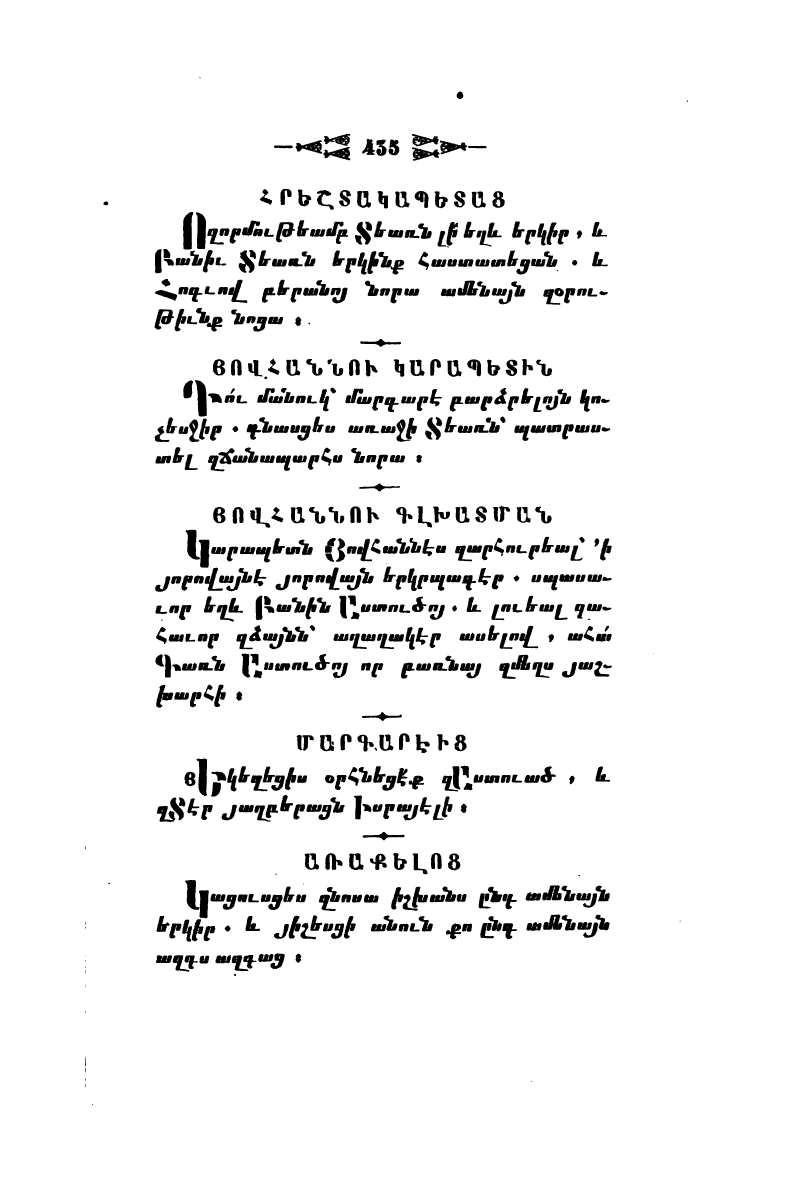 435
ՀՐԵՇՏԱԿԱՊԵՏԱՑ
Ողորմութեամբ Տեառն լի եղև երկիր , և
Բանիւ Տեառն երկինք Հաստատեցան . և
Հոգւով բերանոյ նորա ամենայն զօրու-
թիւնք նոցա :
ՅՈՎՀԱՆՆՈՒ ԿԱՐԱՊԵՏԻՆ
Դու մանուկ՝ մարգարէ բարձրելոյն կո-
չեսջիր . գնասցես առաջի Տեառն՝ պատրաս-
տել զճանապարհս նորա :
ՅՈՎՀԱՆՆՈՒ ԳԼԽԱՏՄԱՆ
Կարապետն Յովհաննէս զարհուրեալ՝ ՚ի
յորովայնէ յորովայն երկրպագէր . սպասա-
ւոր եղև Բանին Աստուծոյ . և լուեալ զա-
հաւոր զձայնն՝ աղաղակէր ասելով , ահա՛
Գառն Աստուծոյ որ բառնայ զմեղս յաշ-
խարհի :
ՄԱՐԳԱՐԷԻՑ
Յեկեղեցիս օրհնեցէք զԱստուած , և
զՏէր յաղբերացն Իսրայէլի :
ԱՌԱՔԵԼՈՑ
Կացուսցես զնոսա իշխանս ընդ ամենայն
երկիր . և յիշեսցի անուն քո ընդ ամենայն
ազգս ազգաց :